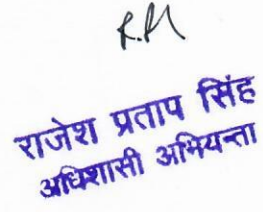 राजेश प्रताप सिंह
अधिशासी अभियन्ता